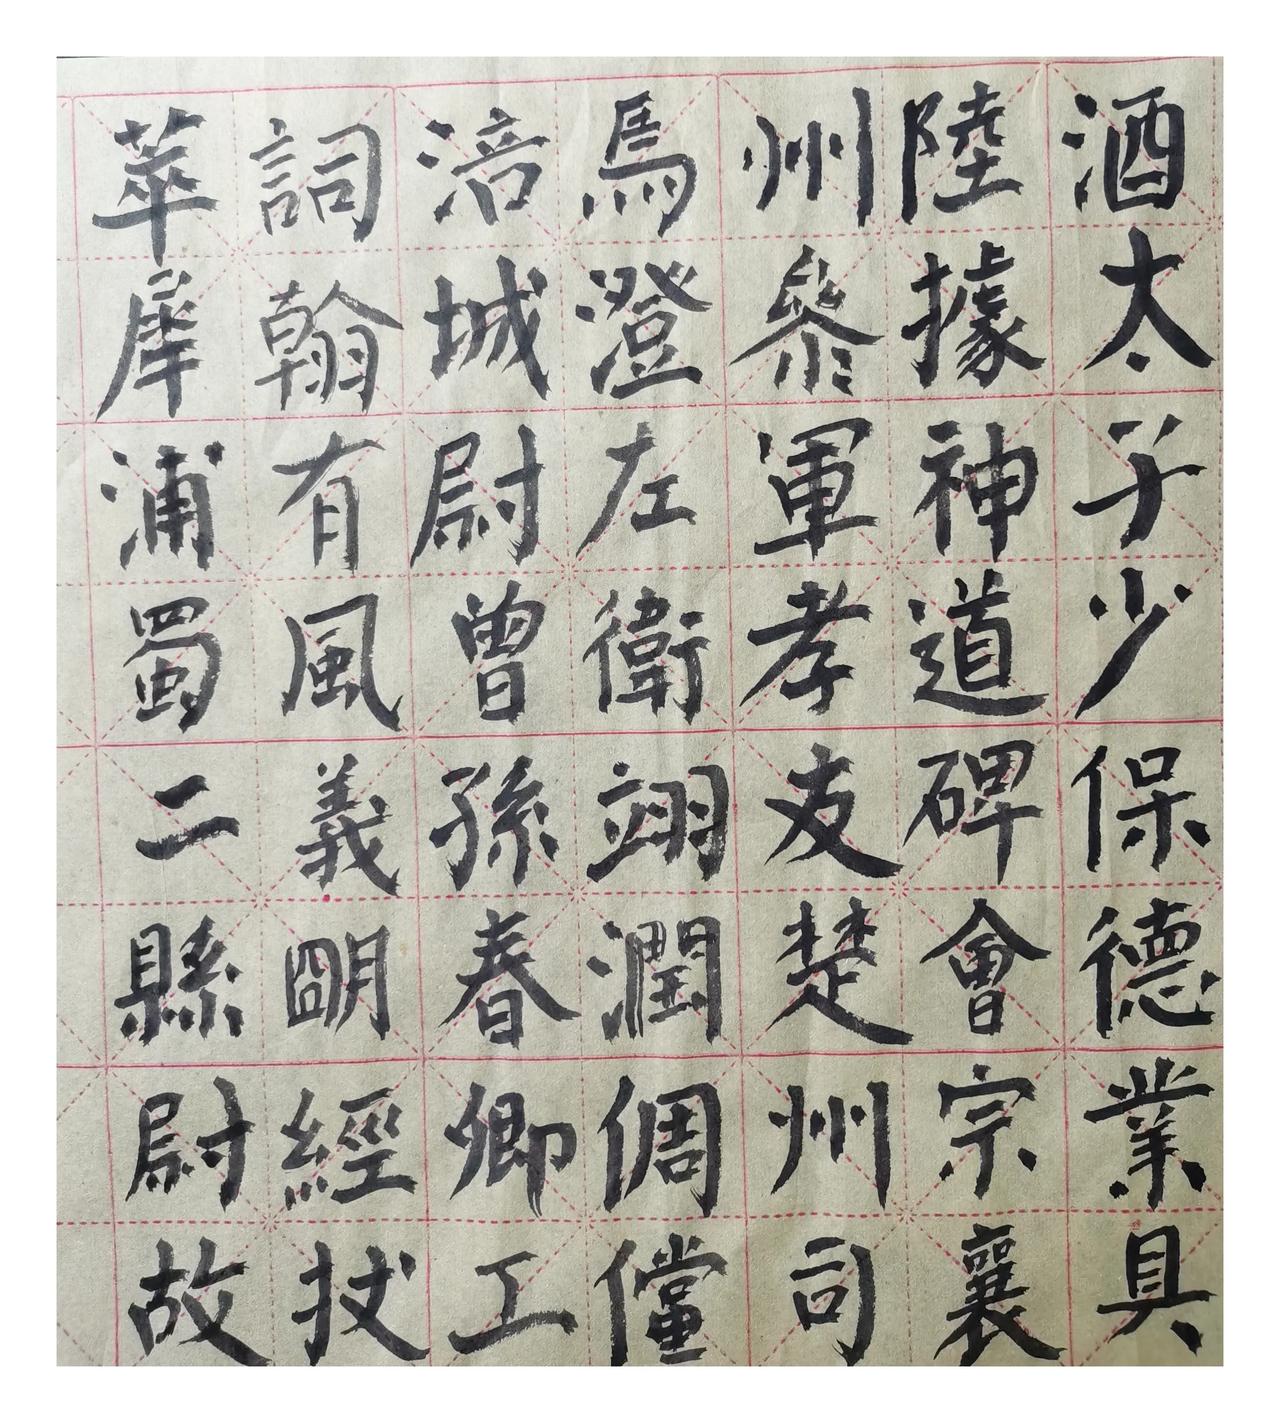 酒太子少保德業具
陸據神道碑會宗襄
州叅軍孝友楚州司
馬澄左衛翊潤倜儻
涪城尉曾孫春卿工
詞翰有風義明經拔
萃犀浦蜀二縣尉故